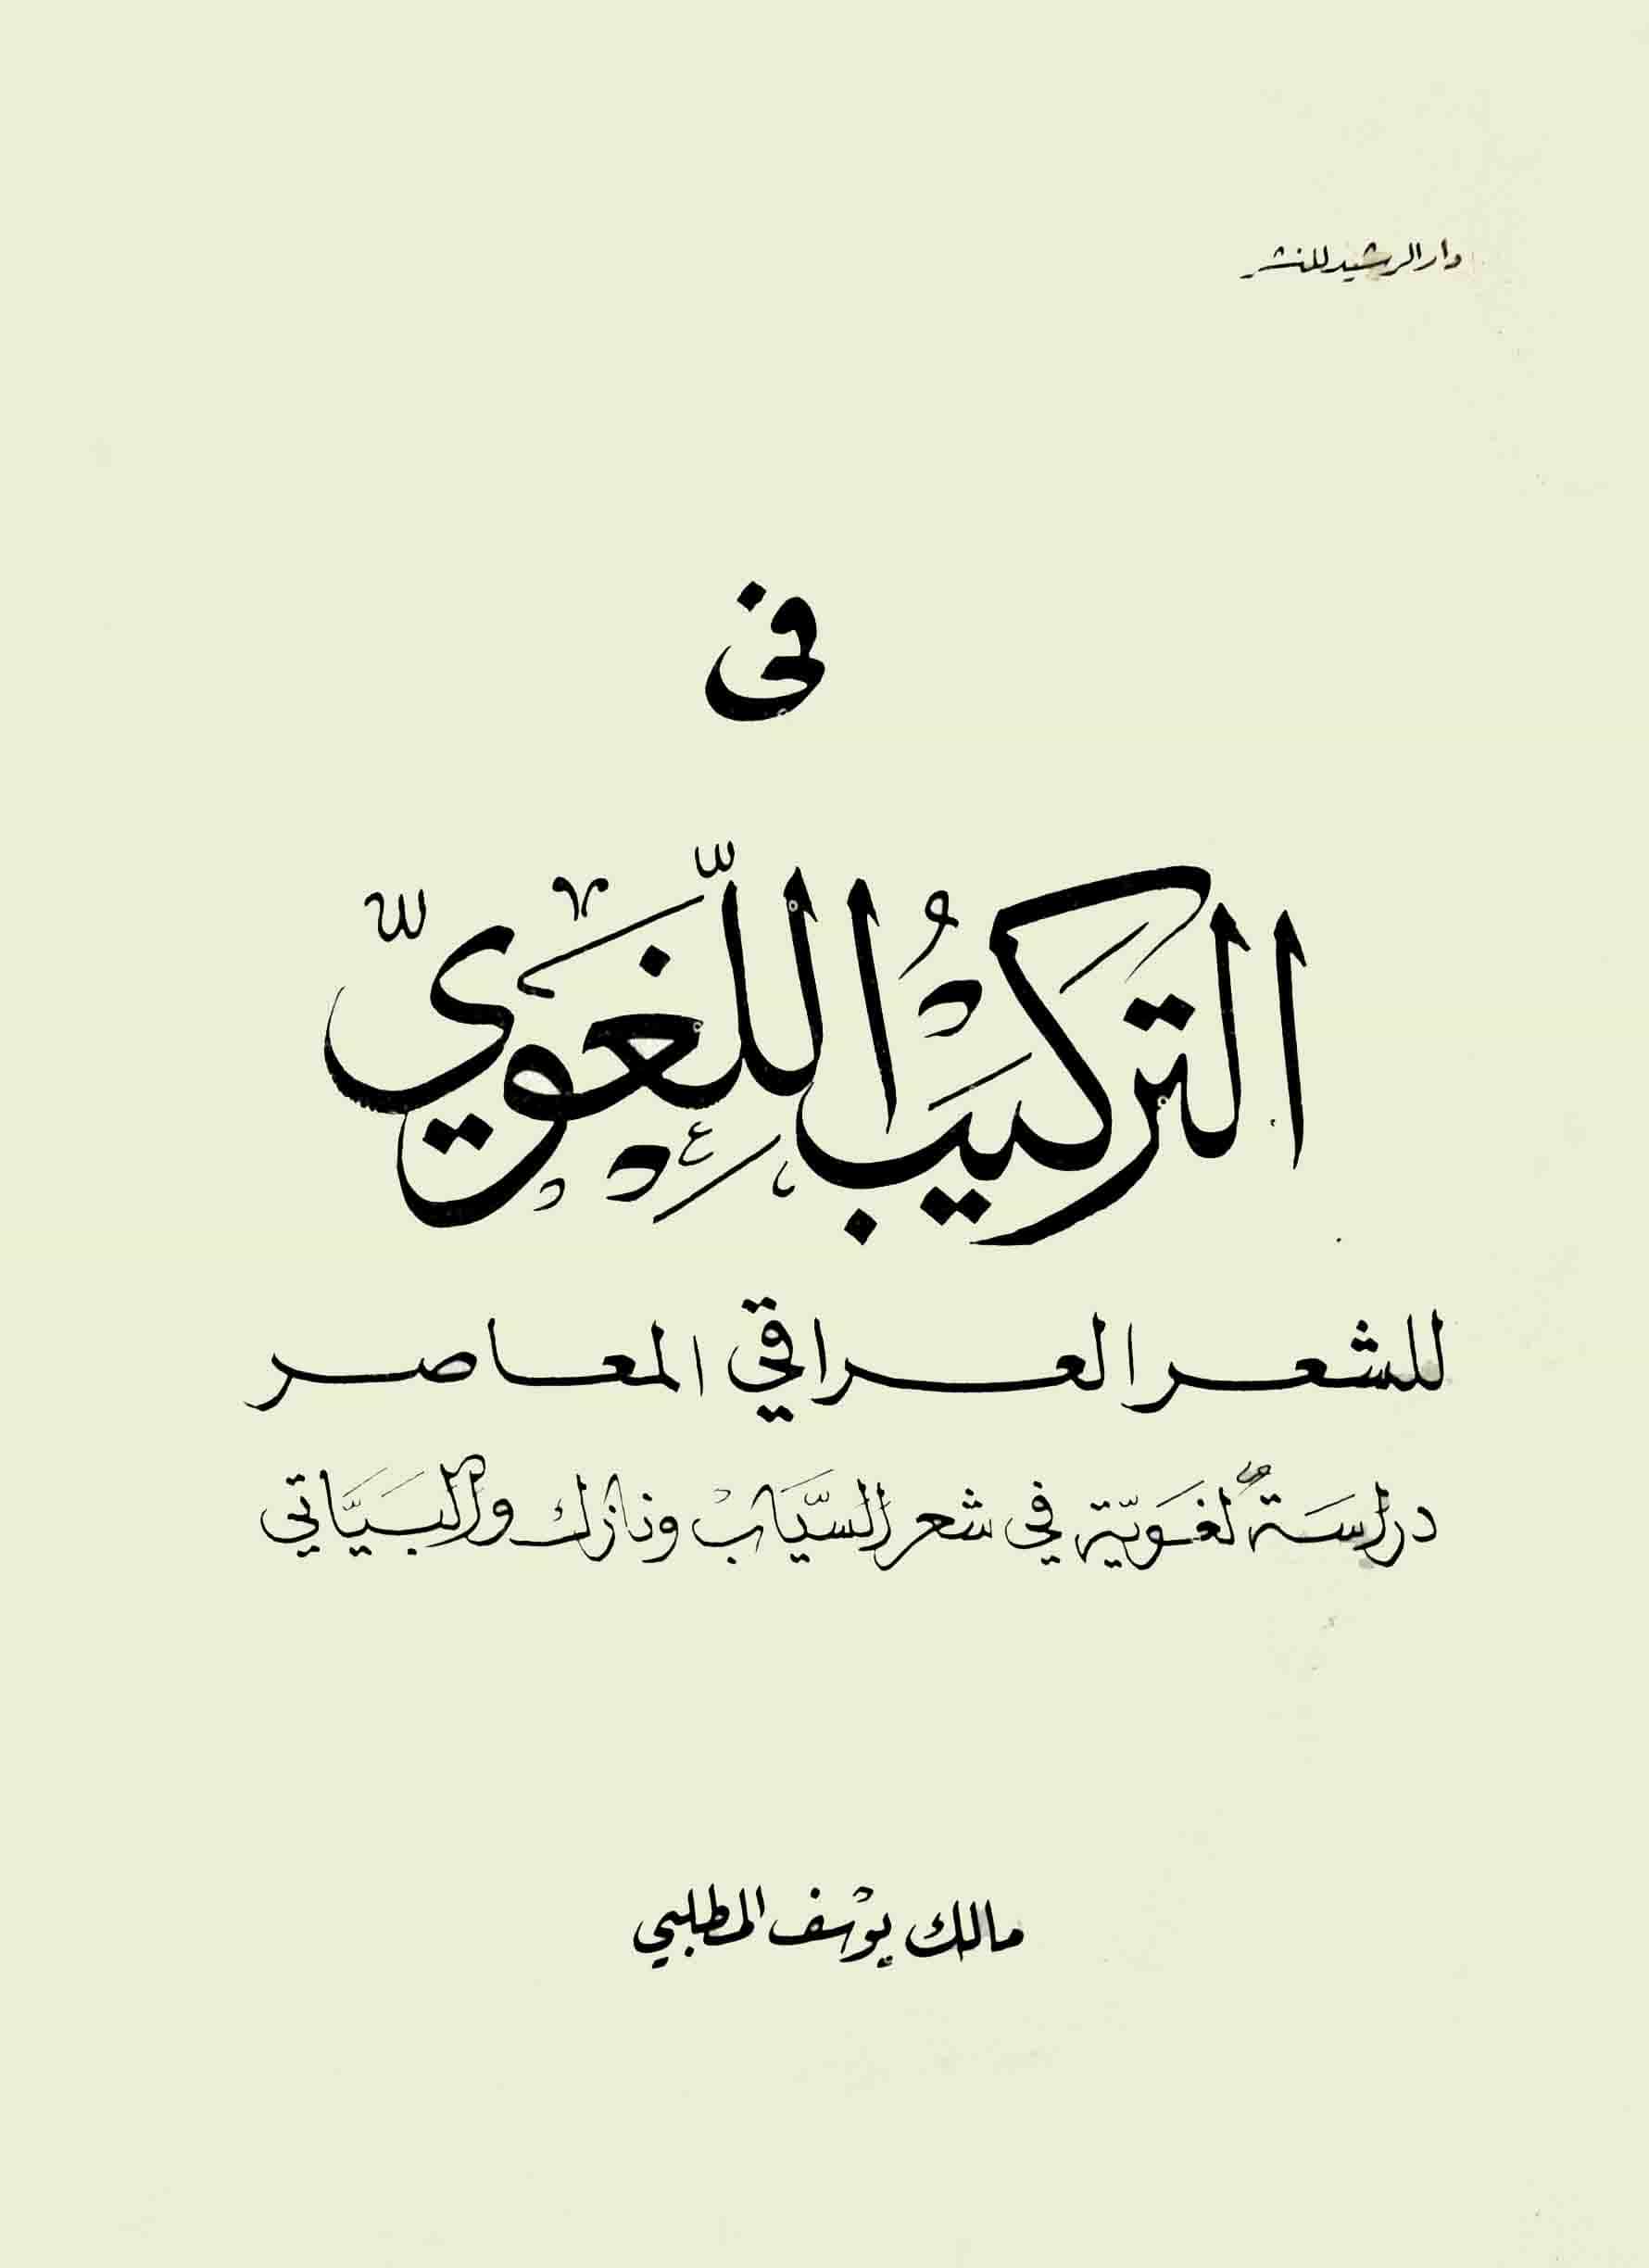 دار الرشيد للنشر
في
التركيبُ اللّغَويّ
للشعر العراقي المعاصر
دراسَة لُغَويّة في شعر السَّيَابْ ونازك والبَيَّاتي
مالك يوْسف المطلبي